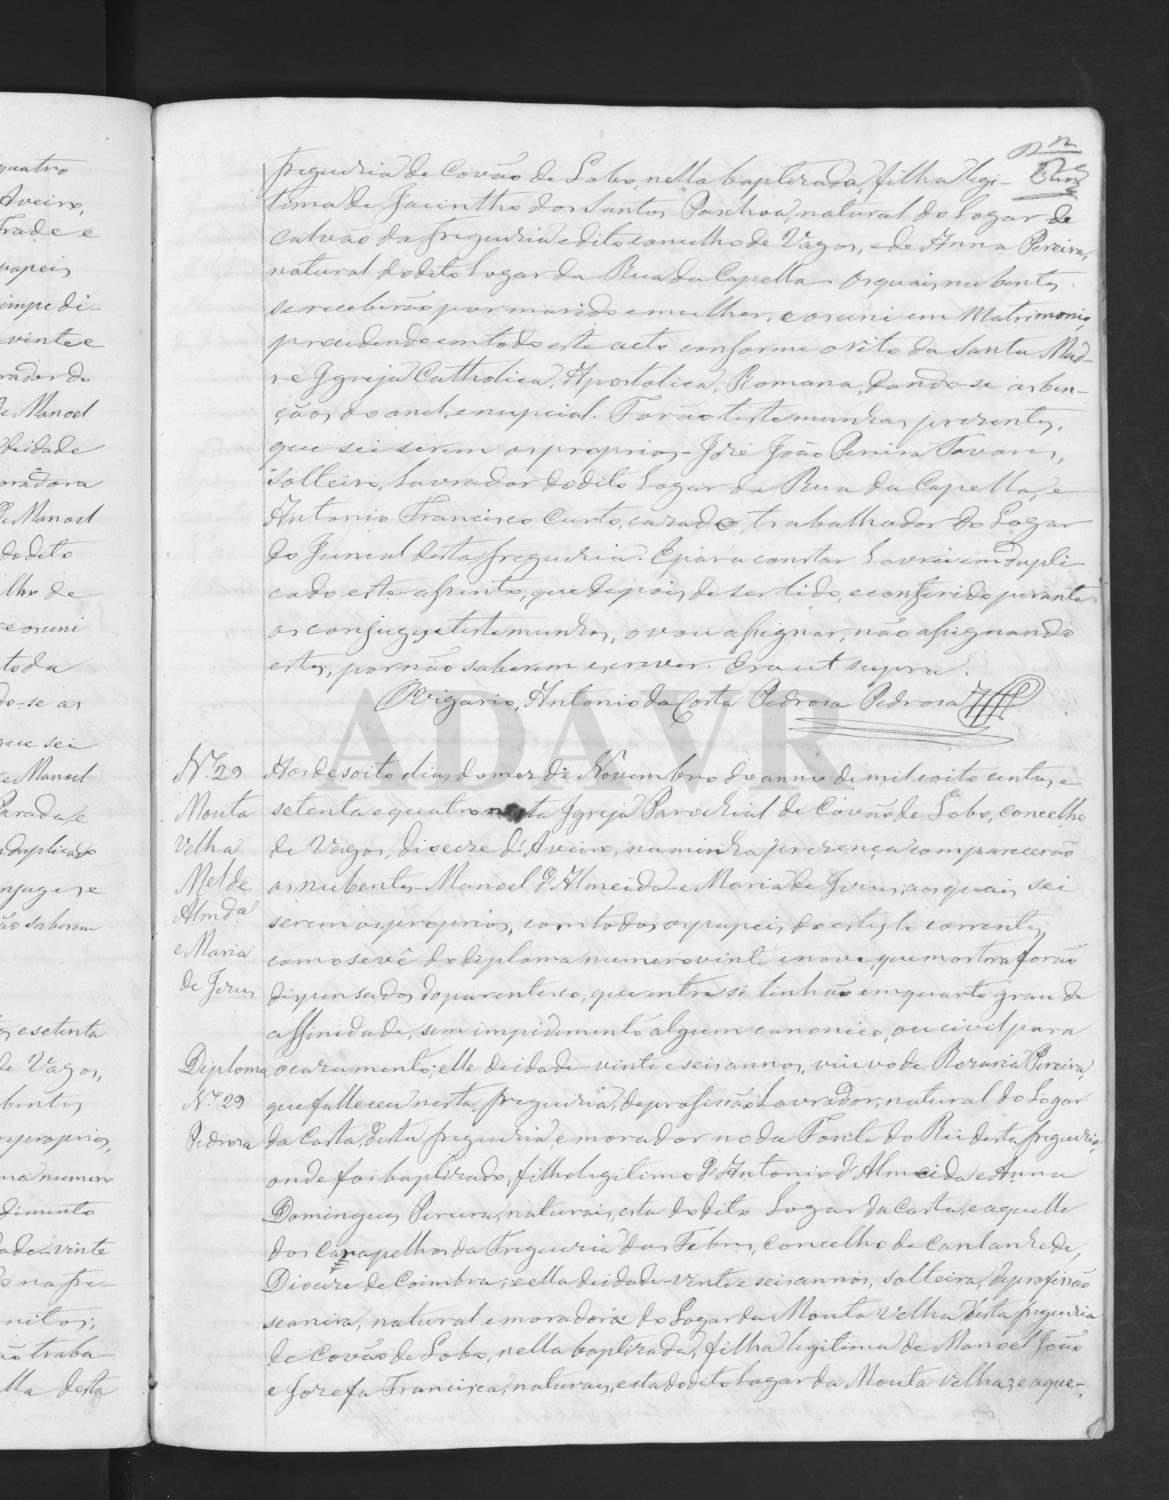 quatro
Aveiro,
Frade e
papeis
impedi-
vinte e
rador do
de Manoel
d'idade
oradora
de Manoel
do dito
lho de
e os uni
toda
do-se as
que sei
e Manoel
Parada, e
duplicado
njuges e
ão saberem
e setenta
de Vagos,
bentes
proprios,
ma numero
dimento
dade vinte
do na fre-
nitos;
ão traba-
lla desta
freguezia de Covão de Lobo, nella baptizada, filha legi-
tima de Jacintho dos Santos Paschoa, natural do Logar de
Calvão da freguezia e dito concelho de Vagos, e de Anna Pereira,
natural do dito Logar da Rua da Capella. Os quaes nubentes
se receberão por marido e mulher, e os uni em Matrimonio,
procedendo em todo este acto conforme o rito da Santa Mad-
re Igreja Catholica, Apostolica, Romana, dando-se as ben-
çãos do anel, e nupcial. Forão testemunhas presentes,
que sei serem os proprios - José João Pereira Tavares,
Solteiro, Lavrador do dito Logar da Rua da Capella, e
Antonio Francisco Curto, casado, trabalhador do Logar
do Juncal desta freguezia. E para constar lavrei em dupli-
cado este assento, que depois de ser lido, e conferido perante
os conjuges e testemunhas, o vou assignar, não assignando
estes, por não saberem escrever. Era ut supra.
O Vigario, Antonio da Costa Pedrosa Pedrosa
ADAVR
N.º 29
Mouta
Velha
Mel de
Almda
e Maria
de Jesus
Diploma
N.º 29
Pedrosa
Aos desoito dias do mez de Novembro do anno de mil oito centos e
setenta e quatro nesta Igreja Parochial de Covão de Lobo, concelho
de Vagos, diocese d'Aveiro, na minha prezença comparecerão
os nubentes Manoel d'Almeida e Maria de Jesus, aos quais sei
serem os proprios, com todos os papeis do estylo correntes,
como se vê do diploma numero vinte e nove, que mostra forão
dispensados do parentesco, que entre si tinhão em quarto grau de
affinidade, sem impedimento algum canonico, ou civil para
o casamento; elle de idade vinte e seis annos, viuvo de Rozaria Pereira,
que falleceu nesta freguezia, de profissão Lavrador, natural do Logar
da Costa, desta freguezia e morador no da Fonte do Rei desta freguezia,
onde foi baptizado, filho legitimo d'Antonio d'Almeida e Anna
Domingues Pereira, naturais, esta do dito Logar da Costa, e aquelle
dos Carapelhos da Freguezia das Febres, concelho de Cantanhede,
Diocese de Coimbra; e ella de idade vinte e seis annos, solteira, de profissão
seareira, natural e moradora do Logar da Mouta Velha desta freguezia
de Covão de Lobo, nella baptizada, filha legitima de Manoel João
e Jozefa Francisca, naturaes, esta do dito Logar da Mouta Velha, e aque-